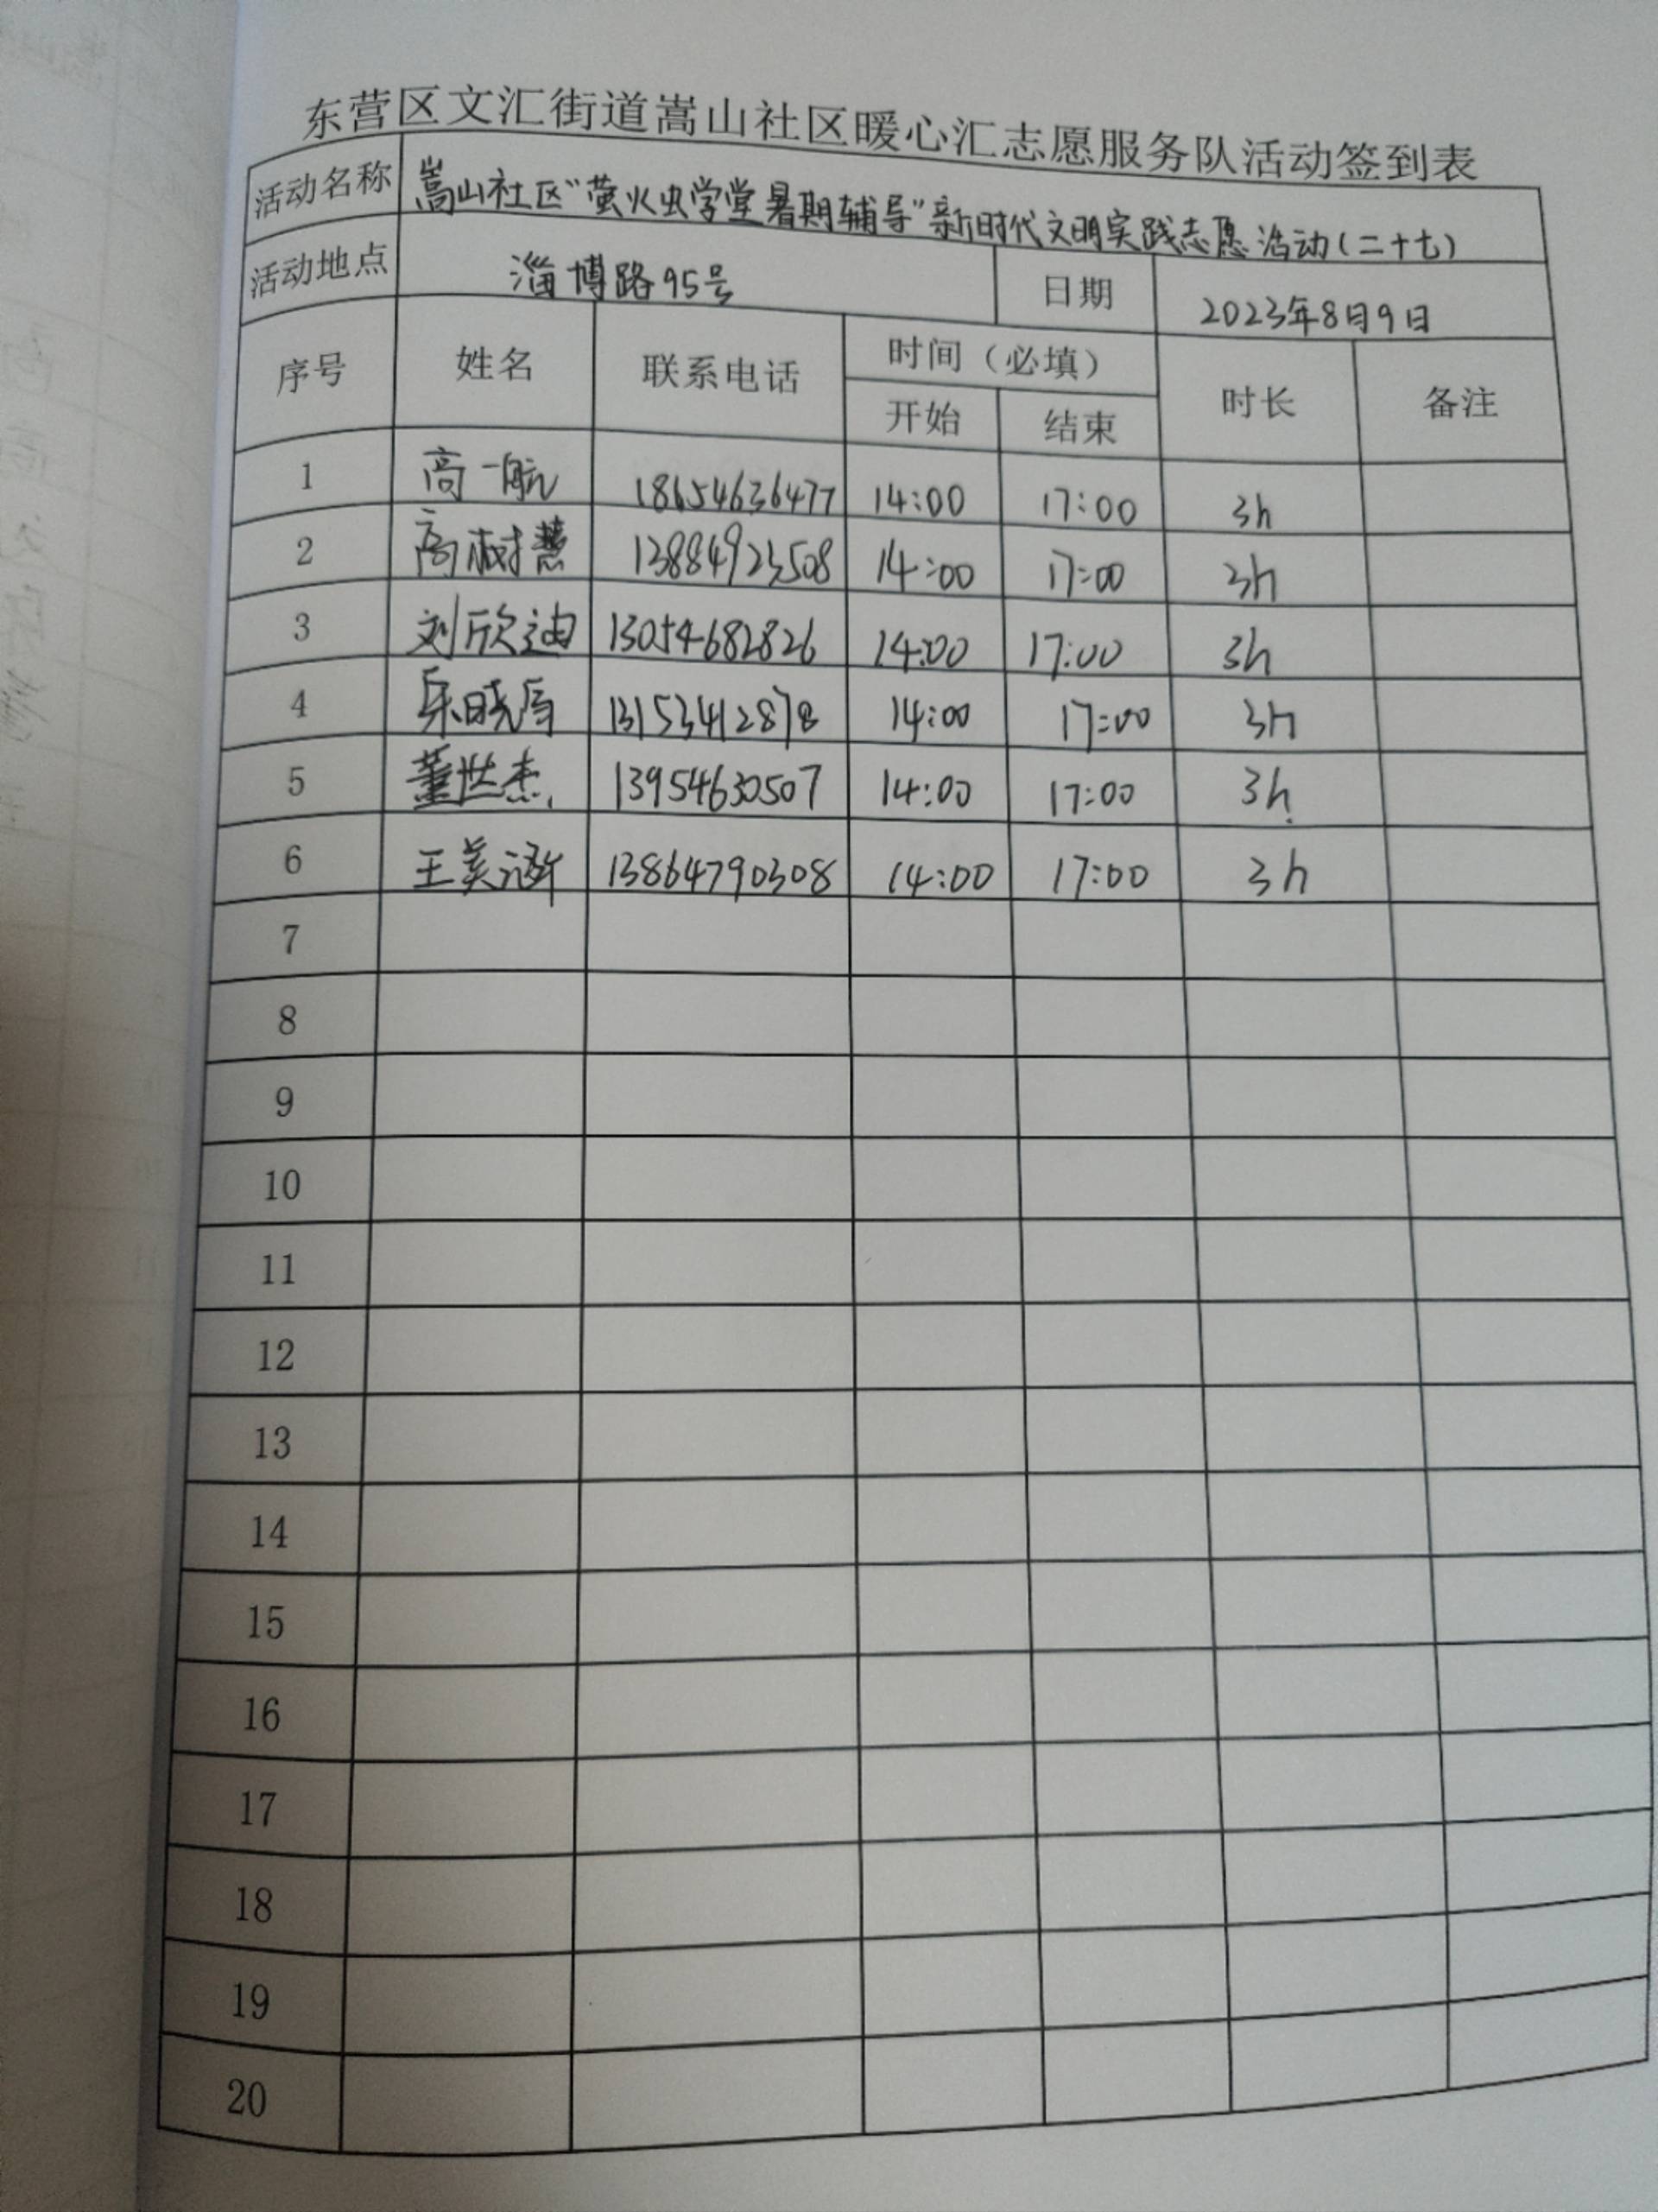 东营区文汇街道嵩山社区暖心汇志愿服务队活动签到表
活动名称 嵩山社区“萤火虫学堂暑期辅导”新时代文明实践志愿活动(二十七)
活动地点 淄博路95号 日期 2023年8月9日
序号 姓名 联系电话 时间（必填） 时长 备注
开始 结束
1 高一航 18654636477 14:00 17:00 3h
2 高树慧 13884923508 14:00 17:00 3h
3 刘欣迪 13054682826 14:00 17:00 3h
4 13153412878 14:00 17:00 3h
5 董世杰 13954630507 14:00 17:00 3h
6 王美涵 13864790308 14:00 17:00 3h
7
8
9
10
11
12
13
14
15
16
17
18
19
20